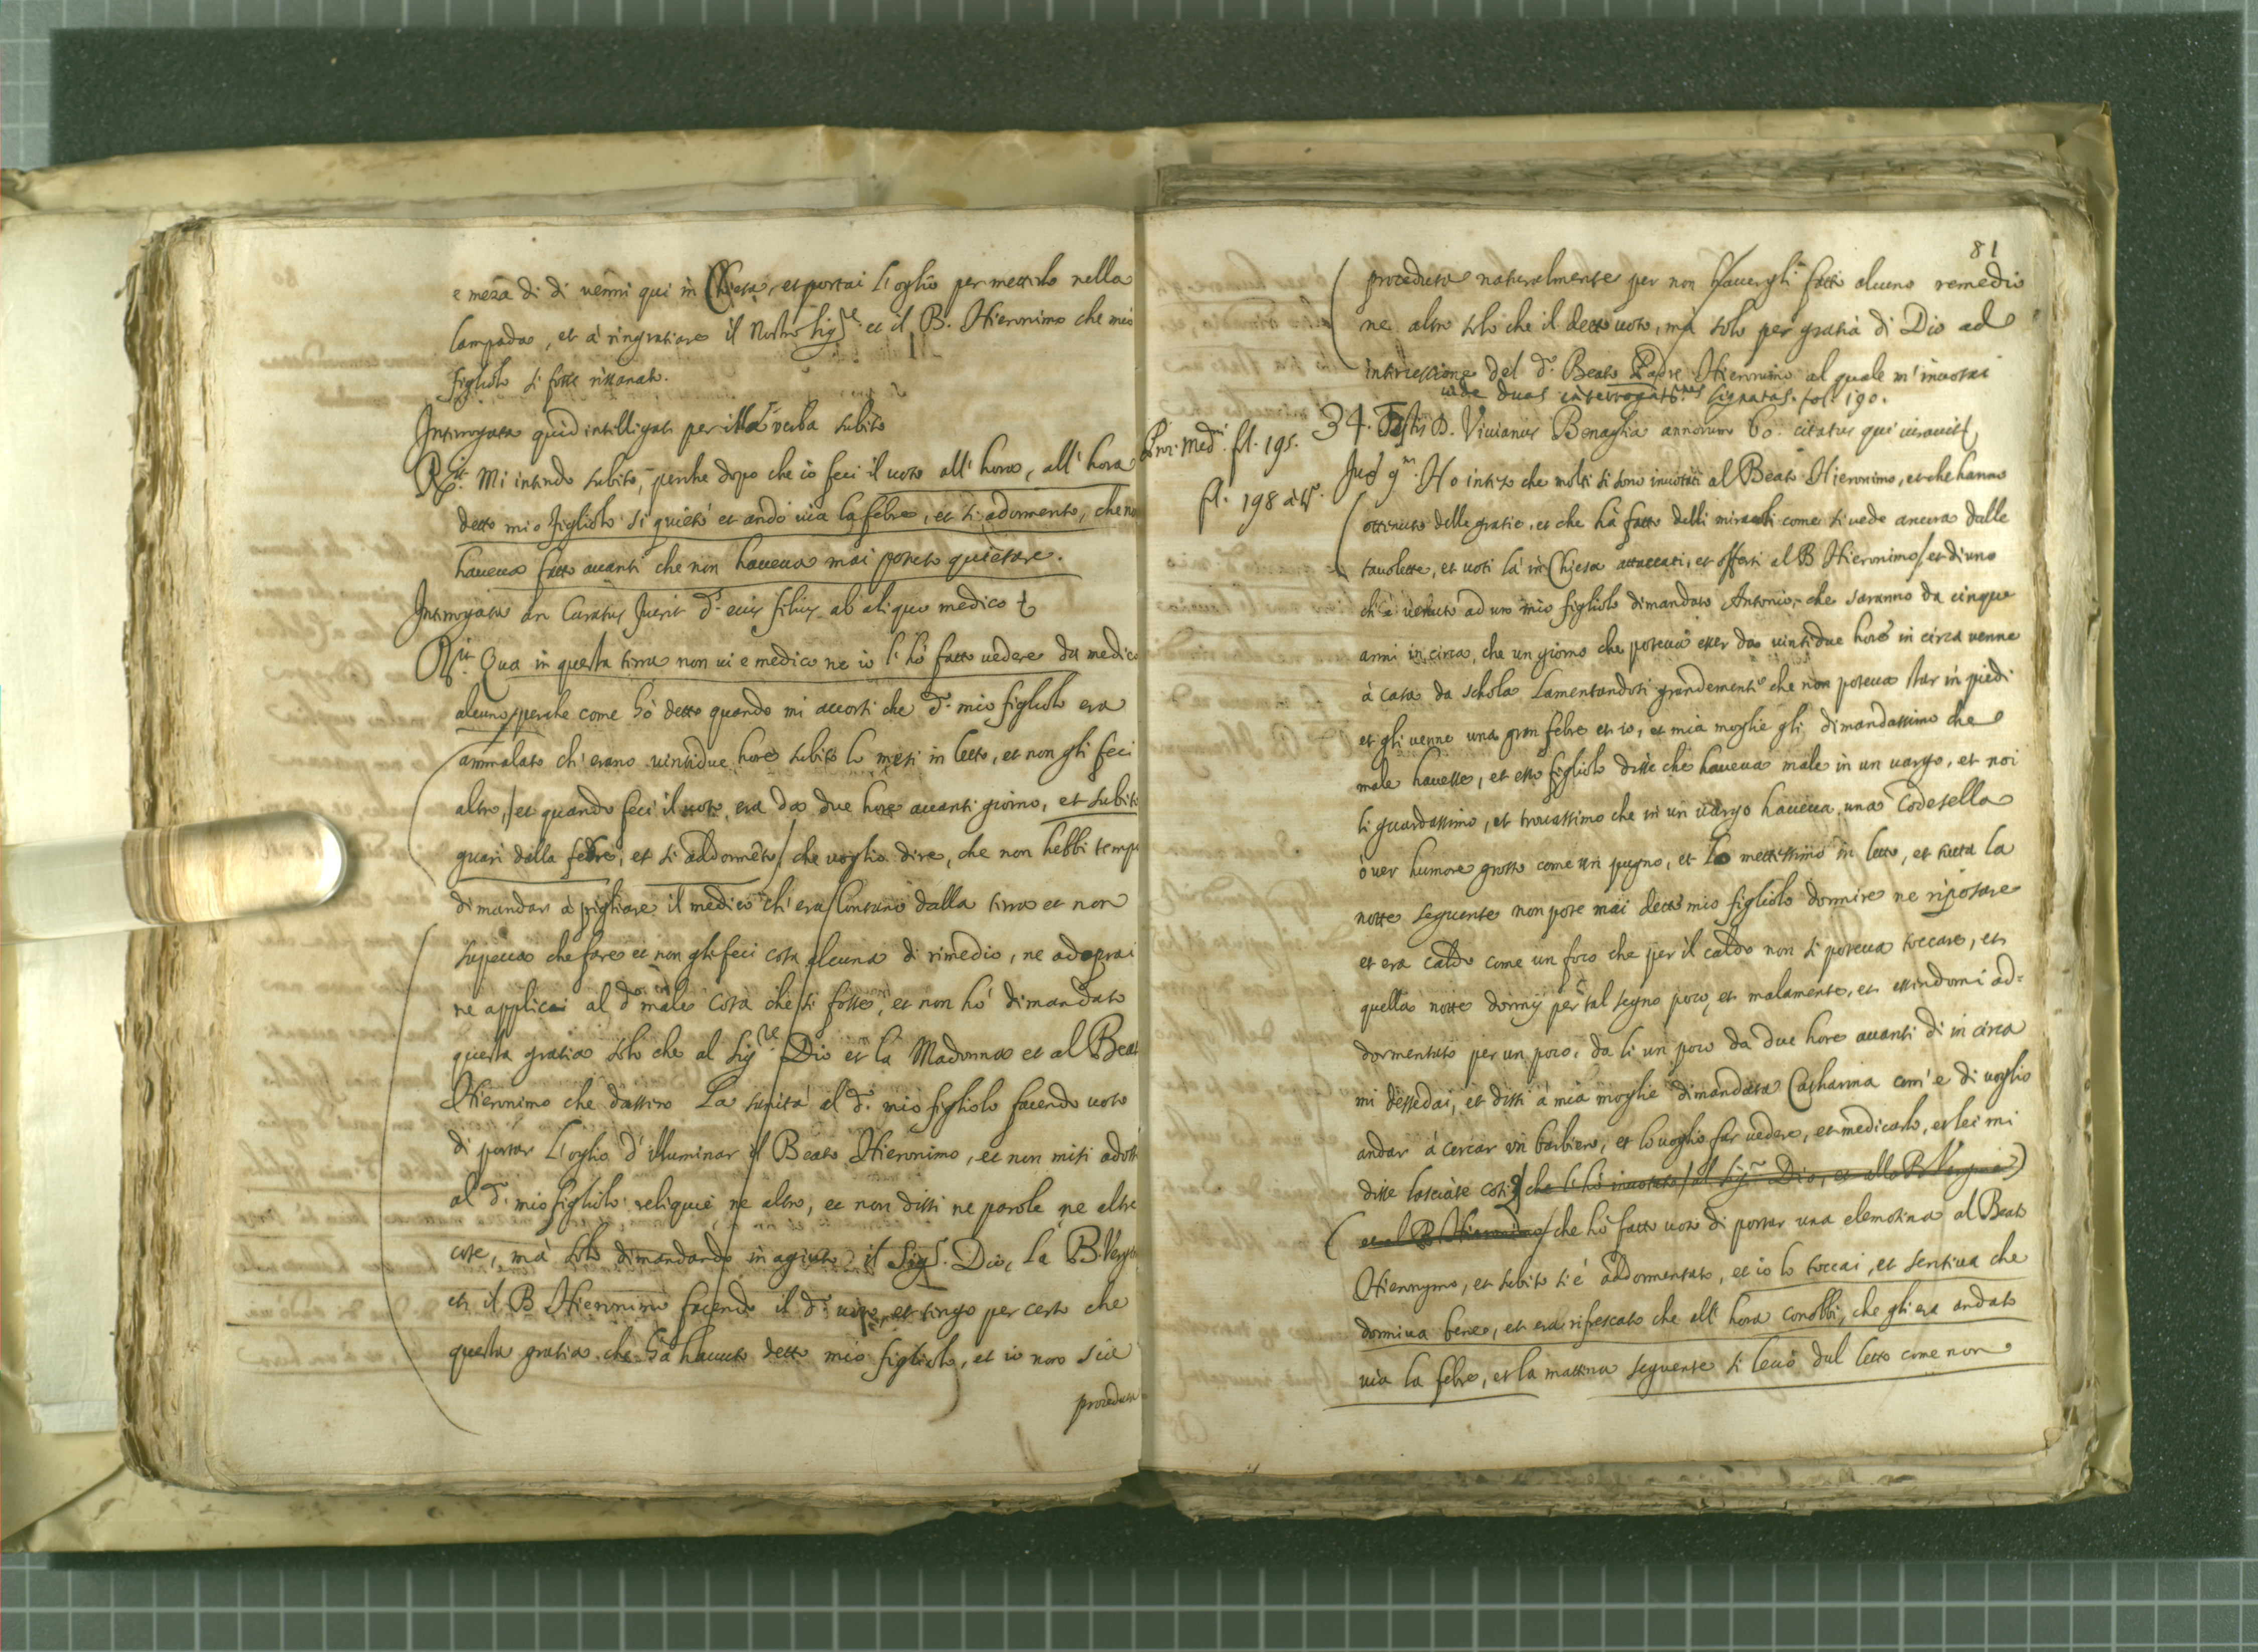 e meza di di venni qui in Chiesa, et portai l'oglio per metterlo nella
lampada, et à ringratiare il Nostro Sig.re et il B. Hieronimo che mio
figliolo si fosse rissanato.
Interrogata quid intelligat per illa verba subito
R.it Mi intendo subito, perche dopo che io feci il voto all'hora, all'hora
detto mio figliolo si quietò et andò via la febre, et si adormentò, che no
haveva fatto avanti che non haveva mai potuto quietare.
Interrogata an Curatus fuerit d.s eius filius ab aliquo medico
R.it Qua in questa terra non vi e medico ne io l'hò fatto vedere da medico
alcuno, perche come hò detto quando mi accorsi che d.o mio figliolo era
ammalato ch'erano vintidue hore subito lo messi in letto, et non gli feci
altro, et quando feci il voto era da due hore avanti giorno, et subito
guarì dalla febre, et si addormētò, che voglio dire, che non hebbi temp
di mandar à pigliare il medico ch'era lontano dalla terra et non
sapeva che fare et non gli feci cosa alcuna di rimedio, ne adoprai
ne applicai al d.o male cosa che si fosse, et non hò dimandato
questa gratia solo che al Sig.re Dio et la Madonna et al Beat
Hieronimo che dassero la sanità al d.o mio figliolo facendo voto
di portar l'oglio d'illuminar il Beato Hieronimo, et non misi adoss
al d.o mio figliolo reliquie ne altro, et non dissi ne parole ne altre
cose, mà solo dimandando in agiuto il Sig.r Dio, la B. Verg
et il B Hieronimo facendo il d.o voto, et tengo per certo che
questa gratia che hà havuto detto mio figliolo, et io non sia
proceduta
81
proceduta naturalmente per non havergli fatto alcuno remedio
ne altro solo che il detto voto, ma solo per gratia di Dio ad
intercessione del d.o Beato Padre Hieronimo al quale m'invotai
vide duas interrogat.nes signatas. fol. 190.
34. Testis D. Vivianus Benaglia annorum 60. citatus qui iuravit
Pror. Med.ni fl. 195.
fl. 198 à t.o
Ho inteso che molti si sono invotati al Beato Hieronimo, et che hanno
ottenuto delle gratie, et che hà fatto delli miracoli come si vede ancora dalle
tavolette, et voti là in Chiesa attaccati, et offerti al B Hieronimo, et di uno
ch'è venuto ad uno mio figliolo dimandato Antonio, che saranno da cinque
anni in circa, che un giorno che poteva esser da vintidue hore in circa venne
à casa da schola lamentandosi grandemente che non poteva star in piedi
et gli venne una gran febre et io, et mia moglie gli dimandassimo che
male havesse, et esso figliolo disse che haveva male in un varzo, et noi
li guardassimo, et trovassimo che in un varzo haveva una Codesella
ò ver humore grosso come un pugno, et lo mettessimo in letto, et tutta la
notte seguente non pote mai detto mio figliolo dormire ne riposare
et era caldo come un foco che per il caldo non si poteva toccare, et
quella notte dormij per tal segno poco, et malamente, et essendomi ad=
dormentato per un poco, da li un poco da due hore avanti dì in circa
mi dessedai, et dissi à mia moglie dimandata Catharina com'e di voglio
andar à cercar un barbiero, et lo voglio far vedere, et medicarlo, et lei mi
disse lasciate cosi, che l'hò invotato al Sig.r Dio, et alla B Vergine
et al B Hieronimo che hò fatto voto di portar una elemosina al Beato
Hieronymo, et subito si è addormentato, et io lo toccai, et sentiva che
dormiva bene, et era rifrescato che all'hora conobbi, che gli era andato
via la febre, et la mattina seguente si levò dal letto come non